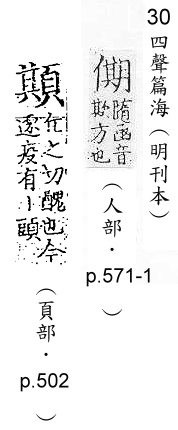 30
四聲篇海（明刊本）
隨函音
欺方也
（人部．
p.571-1
）
䫏
丘之切醜也今
逐疫有丨頭
（頁部．
p.502
）